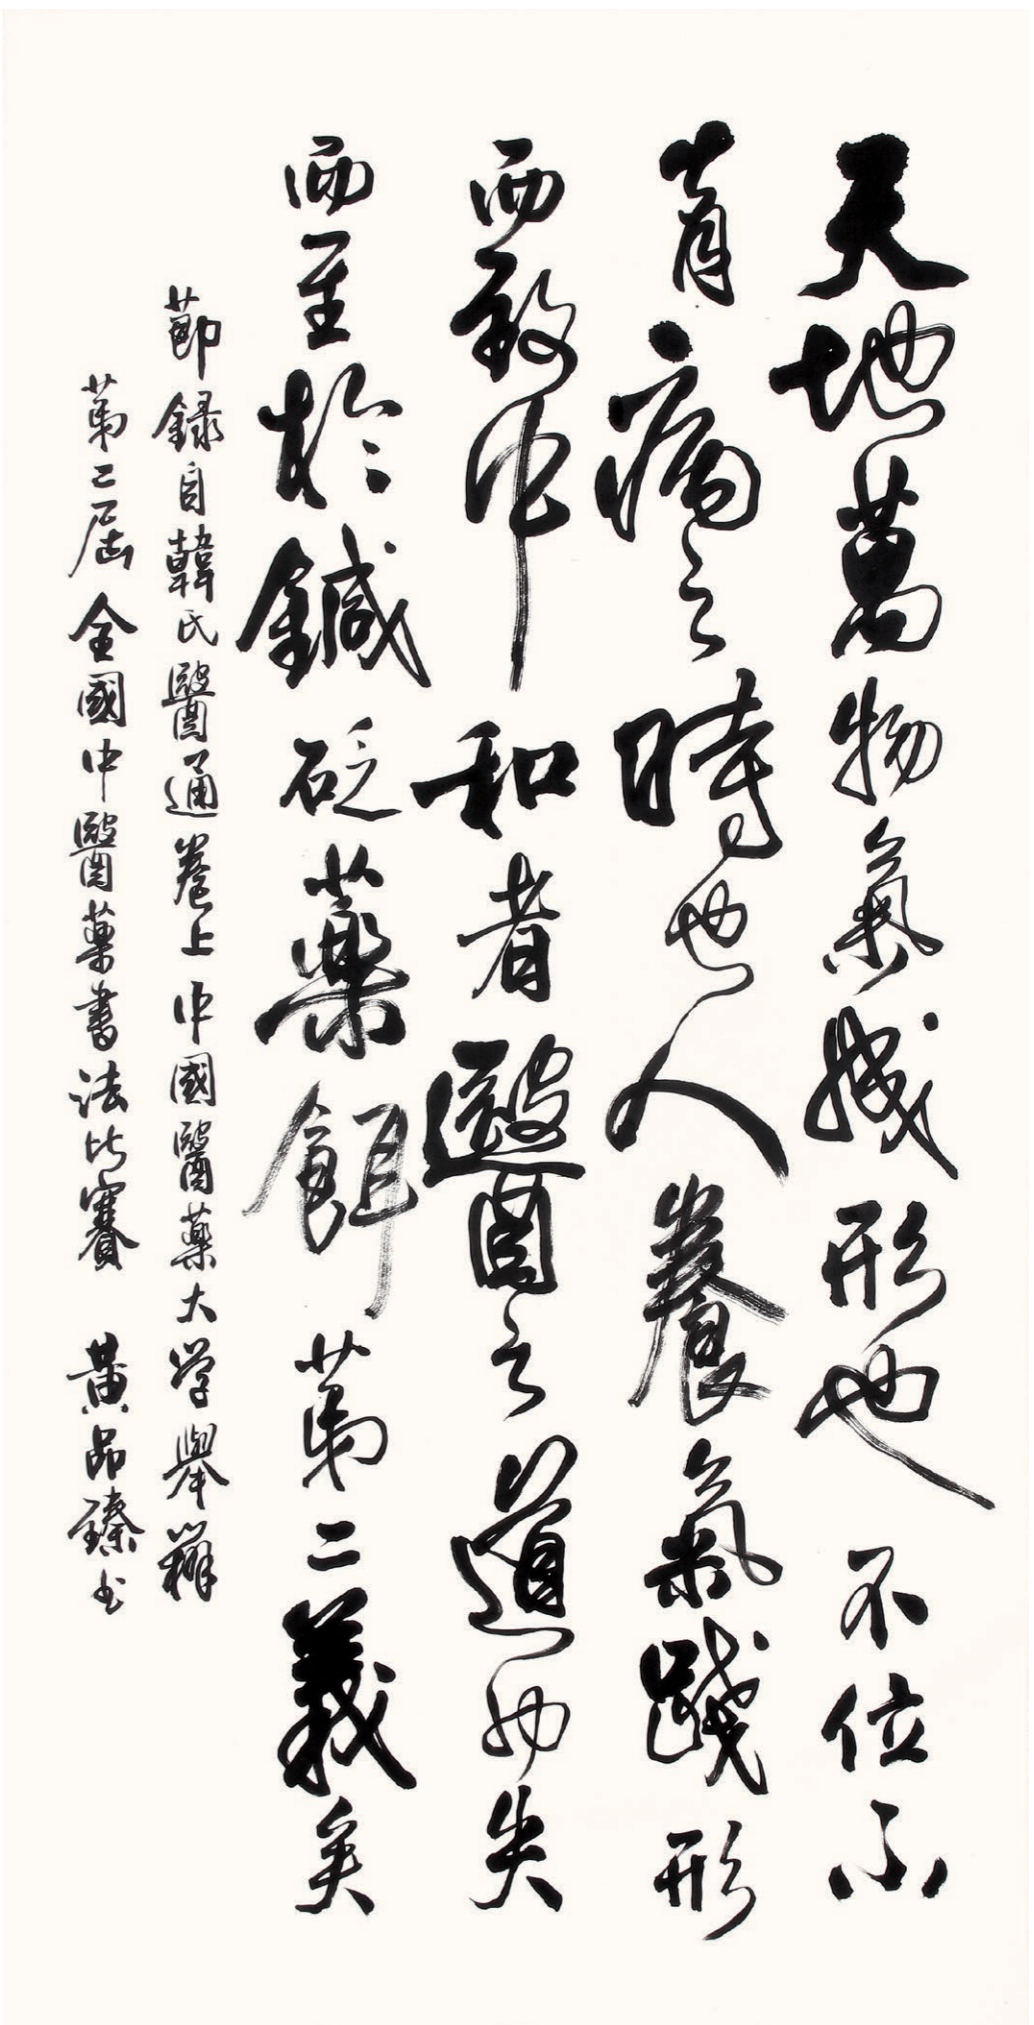 天地萬物氣成形也不位不
育病之時也人養氣踐形
而致中和者醫之道也失
而至於鍼砭藥餌第二義矣
節錄自韓氏醫通卷上中國醫藥大学舉辦
第二屆全國中醫藥書法比賽 黃品臻书